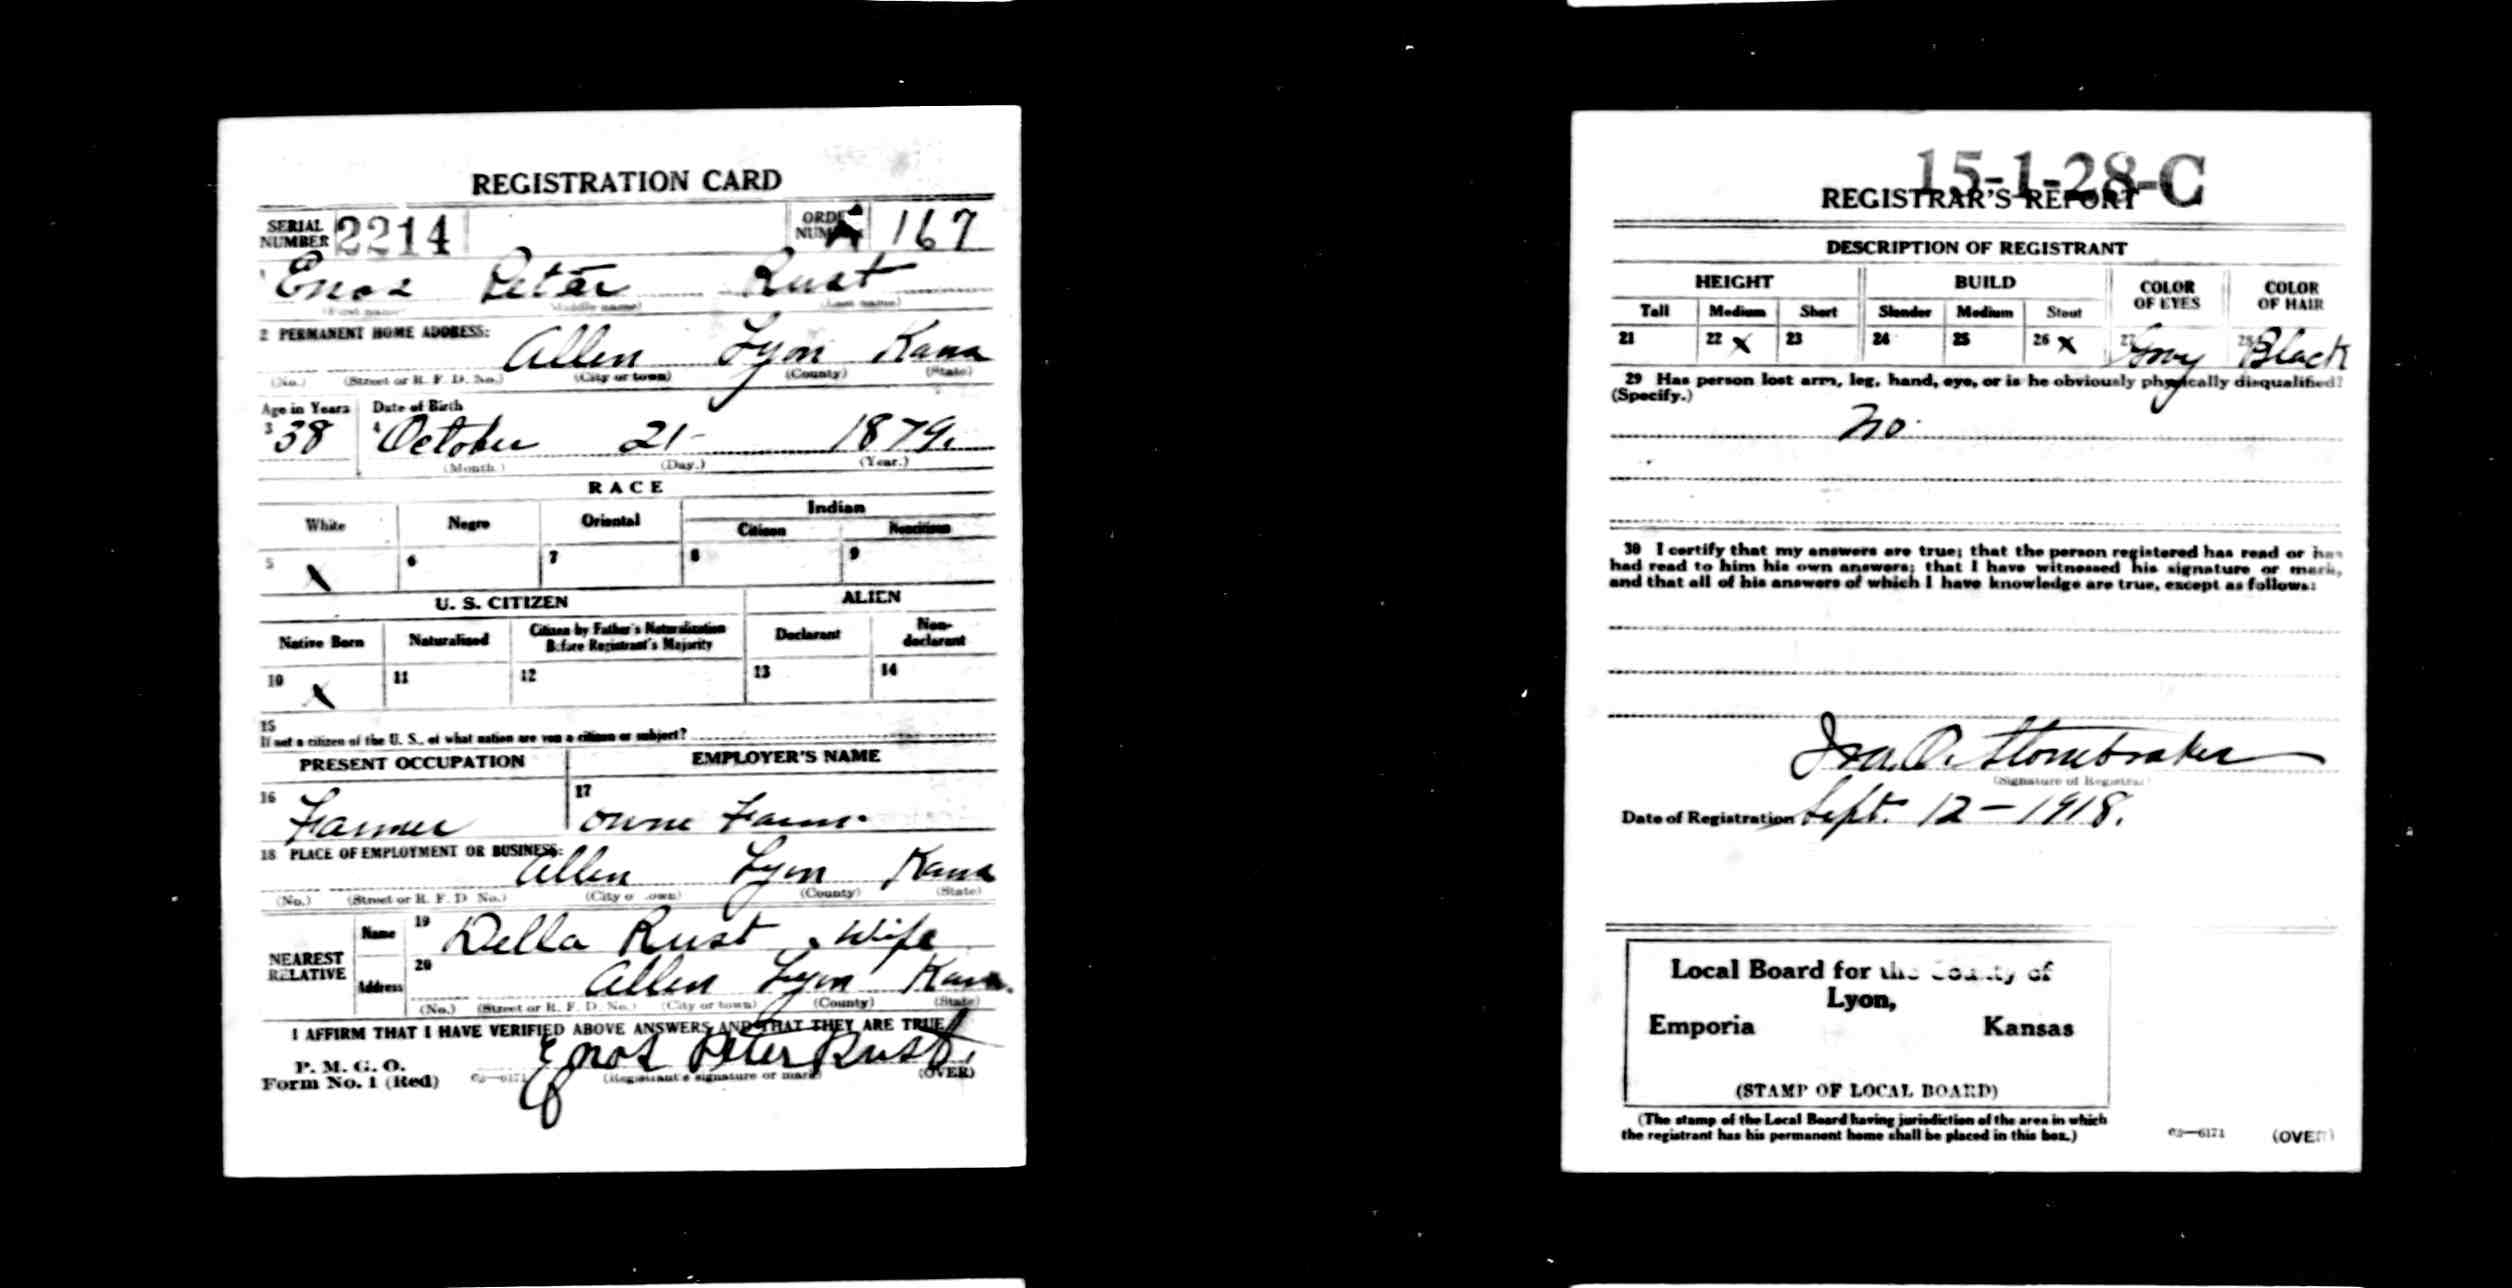 REGISTRATION CARD
SERIAL NUMBER 2214 ORDER NUMBER A 167
1 Enos Peter Rust
(First name) (Middle name) (Last name)
2 PERMANENT HOME ADDRESS:
Allen Lyon Kans
(No.) (Street or R. F. D. No.) (City or town) (County) (State)
Age in Years Date of Birth
3 38 4 October 21- 1879.
(Month.) (Day.) (Year.)
RACE
White Negro Oriental Indian
Citizen Noncitizen
5 X 6 7 8 9
U. S. CITIZEN ALIEN
Native Born Naturalized Citizen by Father's Naturalization Before Registrant's Majority Declarant Non-declarant
10 X 11 12 13 14
15
If not a citizen of the U. S., of what nation are you a citizen or subject?
PRESENT OCCUPATION EMPLOYER'S NAME
16 Farmer 17 owne Farm.
18 PLACE OF EMPLOYMENT OR BUSINESS:
Allen Lyon Kans
(No.) (Street or R. F. D. No.) (City or town) (County) (State)
NEAREST RELATIVE Name 19 Della Rust, wife
Address 20 Allen Lyon Kans.
(No.) (Street or R. F. D. No.) (City or town) (County) (State)
I AFFIRM THAT I HAVE VERIFIED ABOVE ANSWERS AND THAT THEY ARE TRUE
P. M. G. O.
Form No. 1 (Red) 03—6171 Enos Peter Rust.
(Registrant's signature or mark) (OVER)
15-1-28-C
REGISTRAR'S REPORT
DESCRIPTION OF REGISTRANT
HEIGHT BUILD COLOR OF EYES COLOR OF HAIR
Tall Medium Short Slender Medium Stout
21 22 X 23 24 25 26 X 27 Grey 28 Black
29 Has person lost arm, leg, hand, eye, or is he obviously physically disqualified?
(Specify.)
No.
30 I certify that my answers are true; that the person registered has read or has
had read to him his own answers; that I have witnessed his signature or mark,
and that all of his answers of which I have knowledge are true, except as follows:
Ira. O. Stonebraker
(Signature of Registrar)
Date of Registration Sept. 12-1918.
Local Board for the County of
Lyon,
Emporia Kansas
(STAMP OF LOCAL BOARD)
(The stamp of the Local Board having jurisdiction of the area in which
the registrant has his permanent home shall be placed in this box.)
03—6171 (OVER)